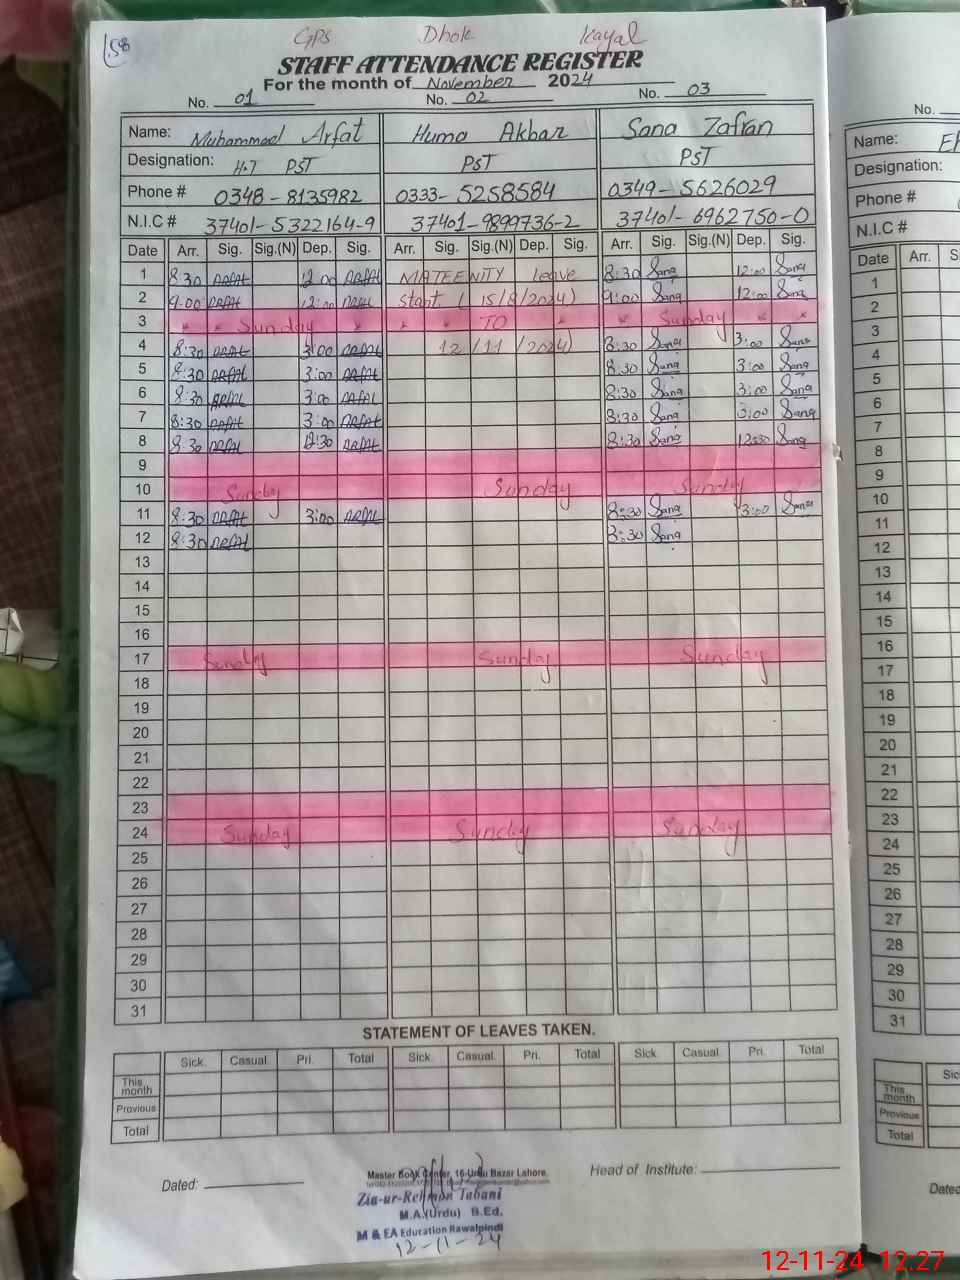 158
GPS Dhok Kayal
STAFF ATTENDANCE REGISTER
For the month of November 2024
No. 01 No. 02 No. 03
Name: Muhammad Arfat Huma Akbar Sana Zafran
Designation: H.T PST PST PST
Phone # 0348-8135982 0333-5258584 0349-5626029
N.I.C # 37401-5322164-9 37401-9899736-2 37401-6962750-0
Date Arr. Sig. Sig.(N) Dep. Sig. Arr. Sig. Sig.(N) Dep. Sig. Arr. Sig. Sig.(N) Dep. Sig.
1 8:30 ARFAT 12:00 ARFAT MATEENITY leave 8:30 Sana 12:00 Sana
2 9:00 ARFAT 12:00 ARFAT start ( 15/8/2024) 9:00 Sana 12:00 Sana
3 Sunday TO Sunday
4 8:30 ARFAT 3:00 ARFAT 12/11/2024) 8:30 Sana 3:00 Sana
5 8:30 ARFAT 3:00 ARFAT 8:30 Sana 3:00 Sana
6 8:30 ARFAT 3:00 ARFAT 8:30 Sana 3:00 Sana
7 8:30 ARFAT 3:00 ARFAT 8:30 Sana 3:00 Sana
8 8:30 ARFAT 12:30 ARFAT 8:30 Sana 12:30 Sana
9
10 Sunday Sunday Sunday
11 8:30 ARFAT 3:00 ARFAT 8:30 Sana 3:00 Sana
12 8:30 ARFAT 8:30 Sana
13
14
15
16
17 Sunday Sunday Sunday
18
19
20
21
22
23
24 Sunday Sunday Sunday
25
26
27
28
29
30
31
STATEMENT OF LEAVES TAKEN.
Sick. Casual. Pri. Total Sick. Casual. Pri. Total Sick. Casual. Pri. Total
This month
Previous
Total
Dated:
Master Book Center, 16-Urdu Bazar Lahore.
Head of Institute:
Zia-ur-Rehman Tabani
M.A.(Urdu) B.Ed.
M & EA Education Rawalpindi
12-11-24
No.
Name:
Designation:
Phone #
N.I.C #
Date Arr.
1
2
3
4
5
6
7
8
9
10
11
12
13
14
15
16
17
18
19
20
21
22
23
24
25
26
27
28
29
30
31
This month
Previous
Total
Dated
12-11-24 12:27